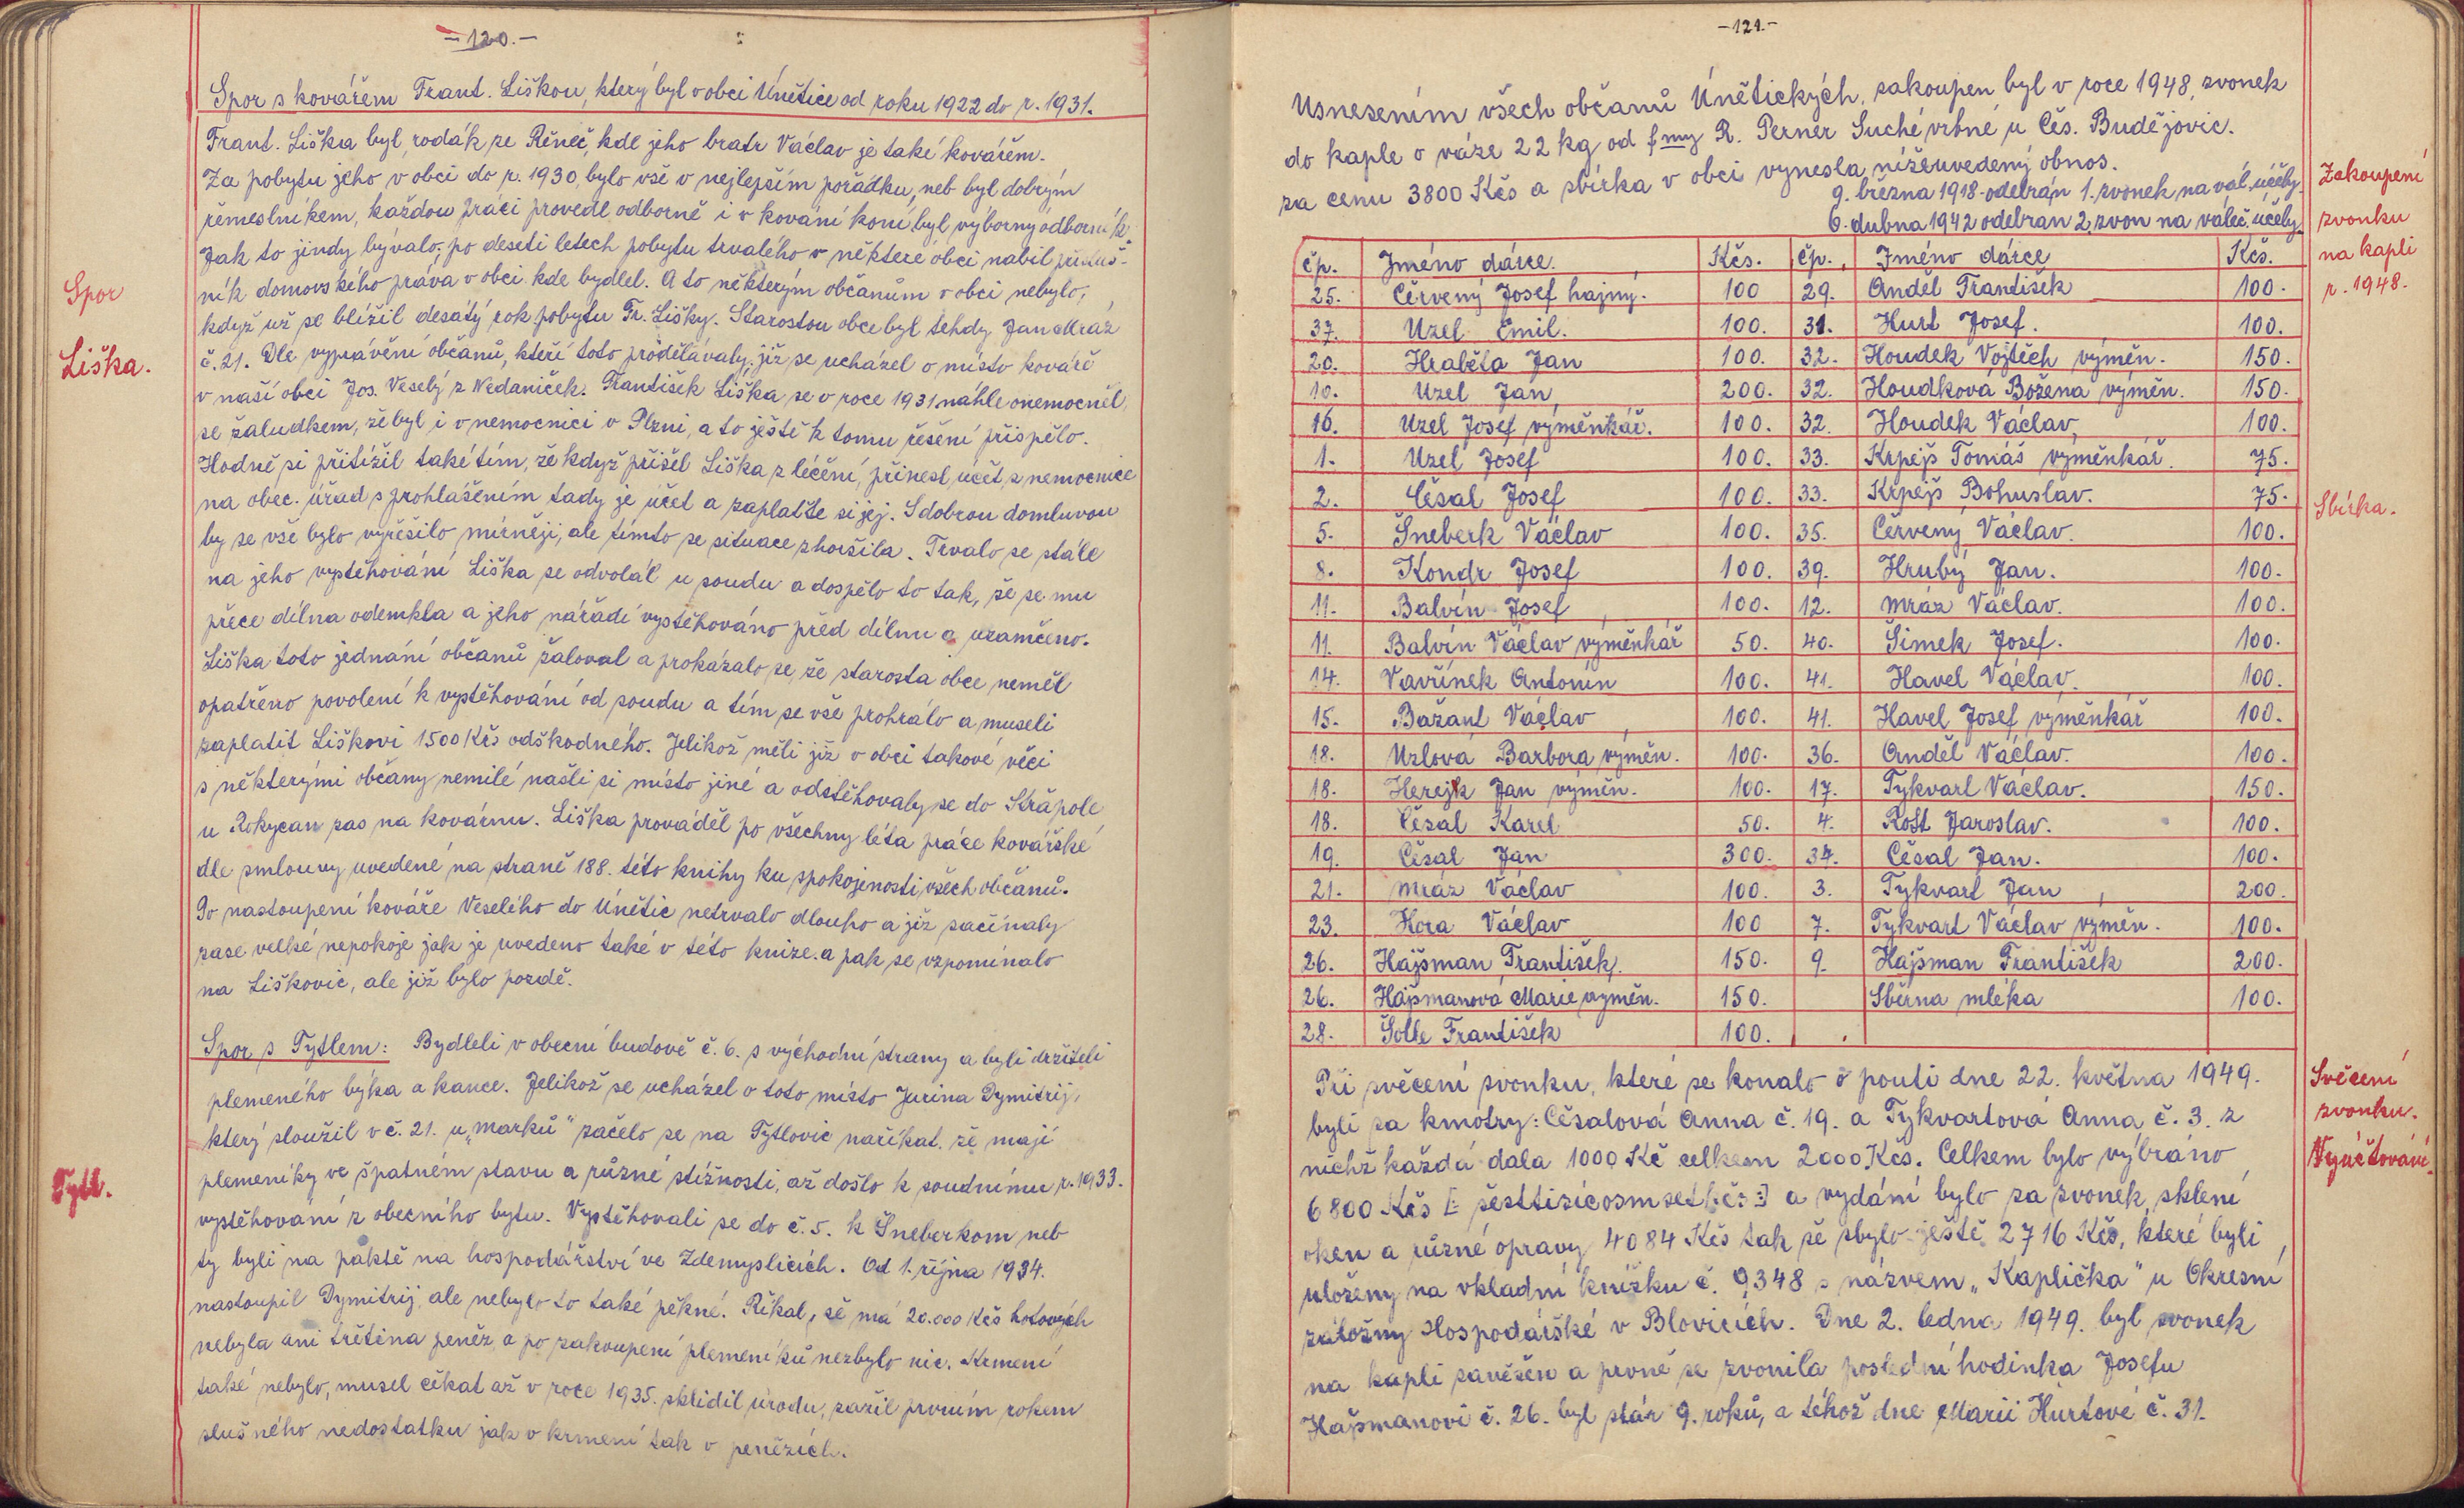 -120.-
Spor s kovářem Frant. Liškou, který byl v obci Únětice od roku 1922 do r. 1931.
Frant. Liška byl rodák ze Řeneč, kde jeho bratr Václav je také kovářem.
Za pobytu jeho v obci do r. 1930, bylo vše v nejlepším pořádku, neb byl dobrým
řemeslníkem, každou práci provedl odborně i v kování koní, byl výborný odborník
Jak to jindy bývalo, po deseti letech pobytu trvalého v některé obci nabil přísluš-
ník domovského práva v obci kde bydlel. A to některým občanům v obci nebylo,
když už se blížil desátý rok pobytu Fr. Lišky. Starostou obce byl tehdy Jan Mráz
č. 21. Dle vyprávění občanů, kteří toto prodělávaly, již se ucházel o místo kováře
v naší obci Jos. Veselý z Nedaniček. František Liška se v roce 1931 náhle onemocněl
se žaludkem, že byl i v nemocnici v Plzni, a to ještě k tomu řešení přispělo.
Hodně si přitížil také tím, že když přišel Liška z léčení, přinesl účet z nemocnice
na obec. úřad s prohlášením tady je účet a zaplaťte si jej. S dobrou domluvou
by se vše bylo vyřešilo mírněji, ale tímto se situace zhoršila. Trvalo se stále
na jeho vystěhování Liška se odvolal u soudu a dospělo to tak, že se mu
přece dílna odemkla a jeho nářadí vystěhováno před dílnu a uzamčeno.
Liška toto jednání občanů žaloval a prokázalo se, že starosta obce neměl
opatřeno povolení k vystěhování od soudu a tím se vše prohrálo a museli
zaplatit Liškovi 1500 Kčs odškodného. Jelikož měli již v obci takové věci
s některými občany nemilé našli si místo jiné a odstěhovaly se do Strápole
u Rokycan zas na kovárnu. Liška prováděl po všechny léta práce kovářské
dle smlouvy uvedené na straně 188. této knihy ku spokojenosti všech občanů.
Po nastoupení kováře Veselého do Únětic netrvalo dlouho a již začínaly
zase velké nepokoje jak je uvedeno také v této knize. a pak se vzpomínalo
na Liškovic, ale již bylo pozdě.
Spor s Tytlem: Bydleli v obecní budově č. 6. s východní strany a byli držiteli
plemeného býka a kance. Jelikož se ucházel o toto místo Jurina Dymitrij,
který sloužil v č. 21. u „Marků" začelo se na Tytlovic naříkat, že mají
plemeníky ve špatném stavu a různé stížnosti, až došlo k soudnímu r. 1933.
vystěhovaní z obecního bytu. Vystěhovali se do č. 5. k Šneberkom neb
ty byli na paktě na hospodářství ve Zdemyslicích. Od 1. října 1934.
nastoupil Dymitrij, ale nebylo to také pěkné. Říkal, že má 20.000 Kčs hotových
nebyla ani třetina peněz a po zakoupení plemeníků nezbylo nic. Krmení
také nebylo, musel čekat až v roce 1935. sklidil úrodu, zažil prvním rokem
slušného nedostatku jak v krmení tak v penězích.
Spor
Liška.
Tytl.
-121.-
Usnesením všech občanů Únětických, zakoupen byl v roce 1948, zvonek
do kaple o váze 22 kg od fmy R. Perner Suché vrbné u Čes. Budějovic.
za cenu 3800 Kčs a sbírka v obci vynesla níže uvedený obnos.
9. března 1918 odebrán 1. zvonek na vál. účely.
6. dubna 1942 odebran 2. zvon na váleč. účely.
čp. Jméno dárce. Kčs. čp. Jméno dárce Kčs.
25. Červený Josef hajný. 100 29. Anděl František 100.
37. Uzel Emil. 100. 31. Hurt Josef. 100.
20. Hraběta Jan 100. 32. Houdek Vojtěch výměn. 150.
10. Uzel Jan 200. 32. Houdková Božena výměn. 150.
16. Uzel Josef výměnkář. 100. 32. Houdek Václav 100.
1. Uzel Josef 100. 33. Krpejš Tomáš vyměnkář. 75.
2. Čěsal Josef 100. 33. Krpejš Bohuslav. 75.
5. Šneberk Václav 100. 35. Červený Václav. 100.
8. Kondr Josef 100. 39. Hrubý Jan. 100.
11. Balvín Josef 100. 12. Mráz Václav. 100.
11. Balvín Václav výměnkář 50. 40. Šimek Josef. 100.
14. Vavřínek Antonín 100. 41. Havel Václav. 100.
15. Bažant Václav 100. 41. Havel Josef výměnkář 100.
18. Uzlová Barbora výměn. 100. 36. Anděl Václav. 100.
18. Herejk Jan výměn. 100. 17. Tykvart Václav. 150.
18. Čěsal Karel 50. 4. Rošt Jaroslav. 100.
19. Čěsal Jan 300. 34. Čěsal Jan. 100.
21. Mráz Václav 100. 3. Tykvart Jan 200.
23. Hora Václav 100 7. Tykvart Václav vyměn. 100.
26. Hajšman František. 150. 9. Hajšman František 200.
26. Hajšmanová Marie vyměn. 150. Sběrna mléka 100.
28. Šolle František 100.
Při svěcení zvonku, které se konalo o pouti dne 22. května 1949.
byli za kmotry: Čěsalová Anna č. 19. a Tykvartová Anna č. 3. z
nichž každá dala 1000 Kč celkem 2000 Kčs. Celkem bylo vybráno
6800 Kčs [: šesttisícosmset kčs :] a vydání bylo za zvonek, sklení
oken a různé opravy 4084 Kčs tak že zbylo ještě 2716 Kčs, které byli
uloženy na vkladní knížku č. 9348 s názvem „Kaplička" u Okresní
záložny Hospodářské v Blovicích. Dne 2. ledna 1949. byl zvonek
na kapli zavěšen a prvně se zvonila poslední hodinka Josefu
Hajšmanovi č. 26. byl stár 9. roků, a téhož dne Marii Hurtové č. 31.
Zakoupení
zvonku
na kapli
r. 1948.
Sbírka.
Svěcení
zvonku.
Vyúčtování.